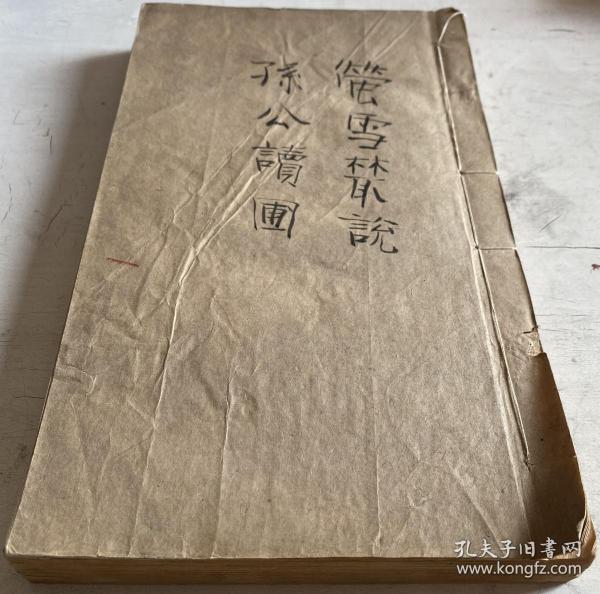 螢雪叢說
孫公讀圃
孔夫子旧書网
www.kongfz.com